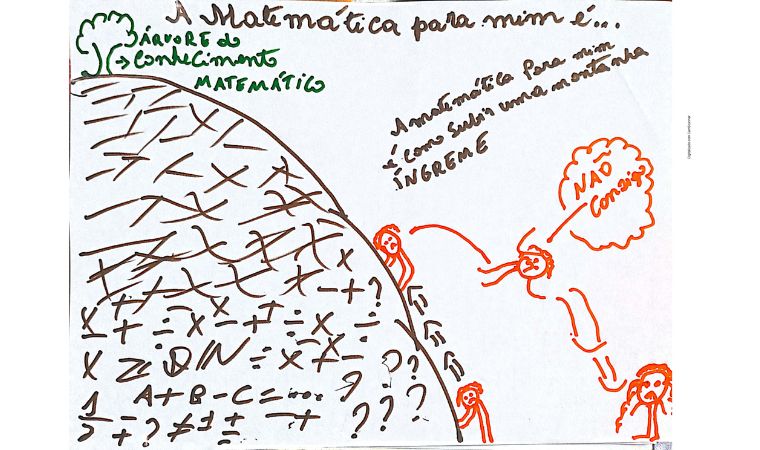 A Matemática para mim é...
ÁRVORE do
Conhecimento
MATEMÁTICO
A matemática Para mim
é como subir uma montanha
ÍNGREME
NÃO
Consigo
X - + ?
X + ÷ X - + ÷ X ÷
X Z Q N ÷ X + -
A + B - C = ...
1/2 - + ? ≠ 1 ± - +
? ? ?